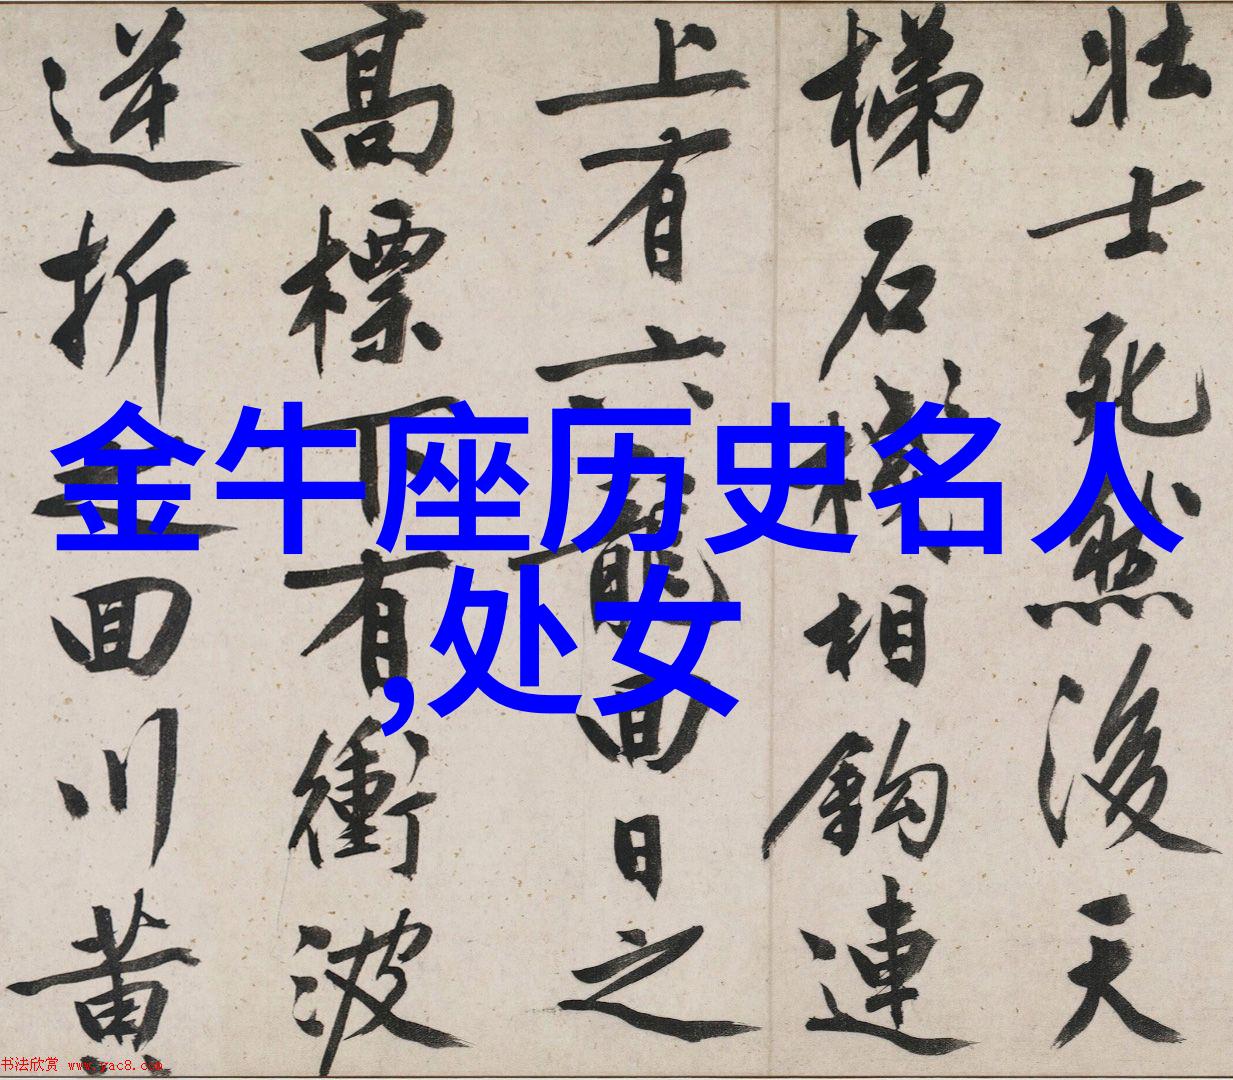 壯士死然後天
梯石棧相鉤連
上有六龍回日之
高標下有衝波
逆折之回川黃
金牛座历史名人
,处女
书法欣赏 www.yac8.com